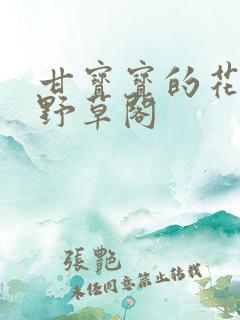 甘寶寶的花
野草閣
張艷
未經同意禁止轉載